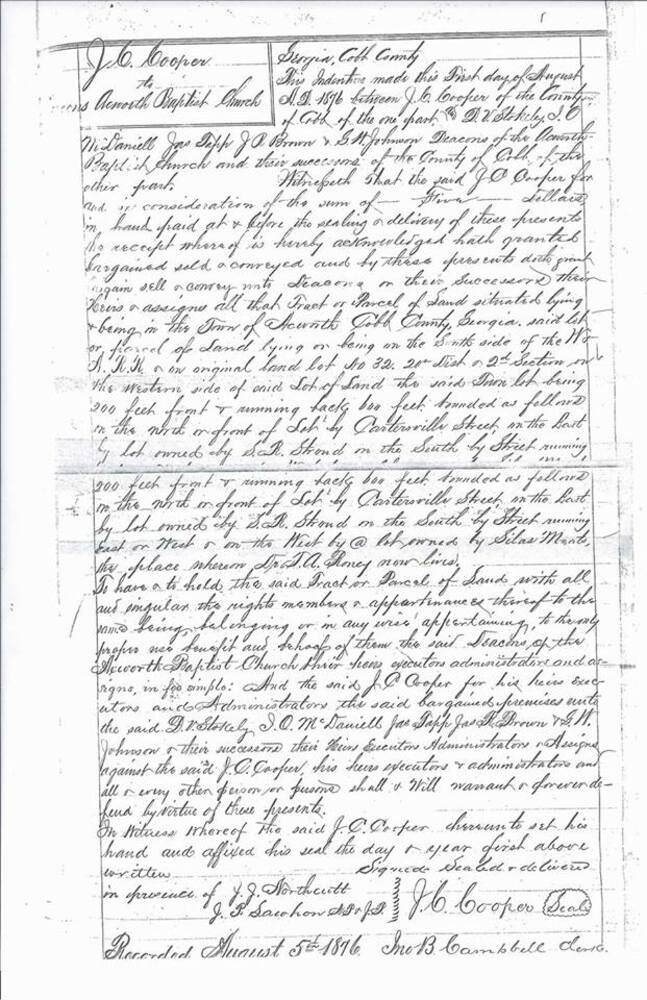 J. C. Cooper
to
Acworth Baptist Church
Georgia, Cobb County
This Indenture made this First day of August
A.D. 1876 between J. C. Cooper of the County
of Cobb of the one part & D. V. Stokely, J. O.
McDaniell Jas Tapp J R Brown & G. W. Johnson Deacons of the Acworth
Baptist Church and their successors of the County of Cobb of the
other part. Witnesseth that the said J C Cooper for
and in consideration of the sum of — Five — Dollars
in hand paid at & before the sealing & delivery of these presents
the receipt whereof is hereby acknowledged hath granted
bargained sold & conveyed and by these presents doth grant
bargain sell & convey unto Deacons or their Successors their
Heirs & assigns all that Tract or Parcel of Land situated lying
& being in the Town of Acworth Cobb County, Georgia, said lot
or parcel of Land lying or being on the South side of the W &
A. R. R. & on original land lot No 32. 20th Dist & 2nd Section, on
the western side of said Lot of Land the said Town lot being
200 feet front & running back 600 feet. bounded as follows
on the north or front of Lot by Cartersville Street, on the East
by lot owned by S. R. Stroud on the South by Street running
200 feet front & running back 600 feet. bounded as follows
on the north or front of Lot by Cartersville Street, on the East
by lot owned by S. R. Stroud on the South by Street running
East or West & on the West by @ lot owned by Silas
the place whereon Dr. T. A. Roney now lives.
To have & to hold the said Tract or Parcel of Land with all
and singular the rights members & appertenances thereof to the
same being, belonging or in any wise appertaining, to the only
proper use benefit and behoof of them the said Deacons, of the
Acworth Baptist Church their heirs executors administrators and as-
signs, in fee simple: And the said J. C Cooper for his heirs Exec-
utors and Administrators the said bargained premises unto
the said D. V. Stokely J. O. McDaniell Jas Tapp Jas R Brown & G. W.
Johnson & their successors their Heirs Executors Administrators & Assigns
against the said J. C. Cooper, his heirs executors & administrators and
all & every other person or persons shall & Will warrant & forever de-
fend by virtue of these presents.
In Witness whereof the said J. C. Cooper hereunto set his
hand and affixed his seal the day & year first above
written Signed Sealed & delivered
in presence of J. J. Northcutt
J. F.
J. C. Cooper Seal
Recorded August 5th 1876 Jno B. Campbell Clerk